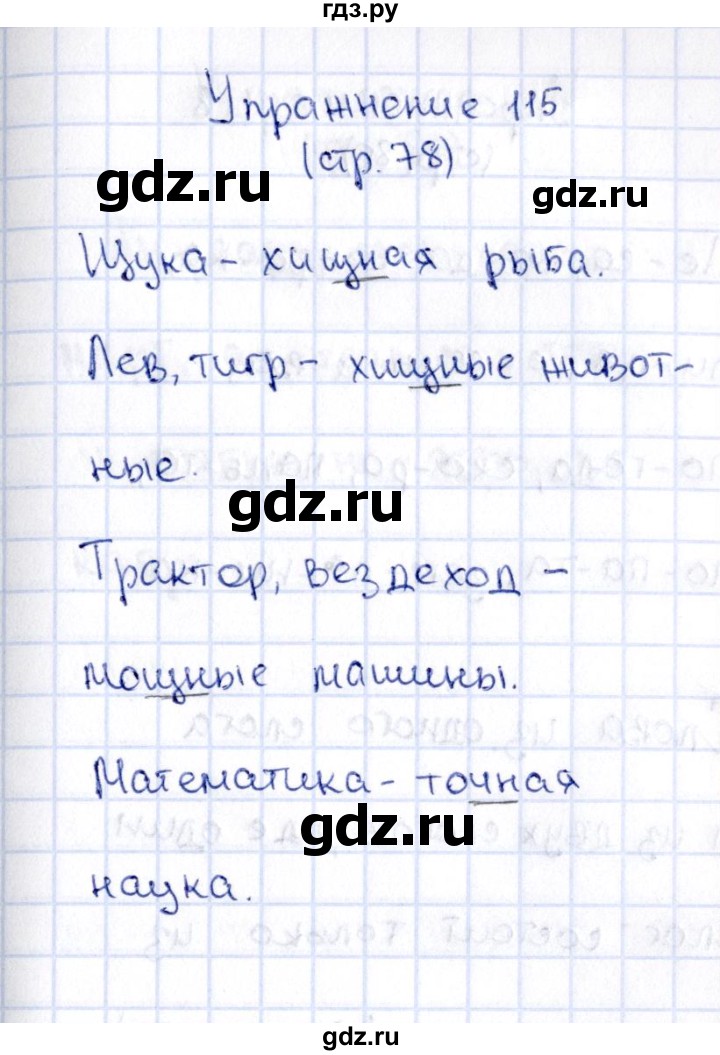 гдз.ру
Упражнение 115
(стр. 78)
gdz.ru
gdz.ru
Щука - хищная рыба.
Лев, тигр - хищные живот-
ные.
gdz.ru
Трактор, вездеход -
мощные машины.
Математика - точная
gdz.ru
наука.
gdz.ru